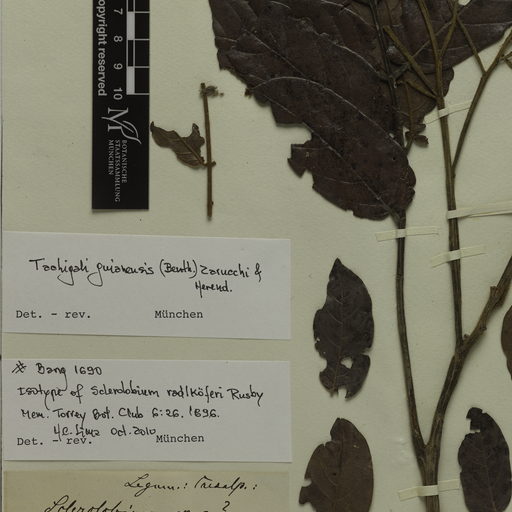 7 8 9 10
copyright reserved
BOTANISCHE
STAATSSAMMLUNG
MÜNCHEN
Tachigali guianensis (Benth.) Zarucchi &
Herend.
Det. - rev. München
# Bang 1690
Isotype of Sclerolobium radlköferi Rusby
Mem. Torrey Bot. Club 6:26. 1896.
H.C. Lima Oct. 2010
Det. - rev. München
Legum.: Caesalp.: